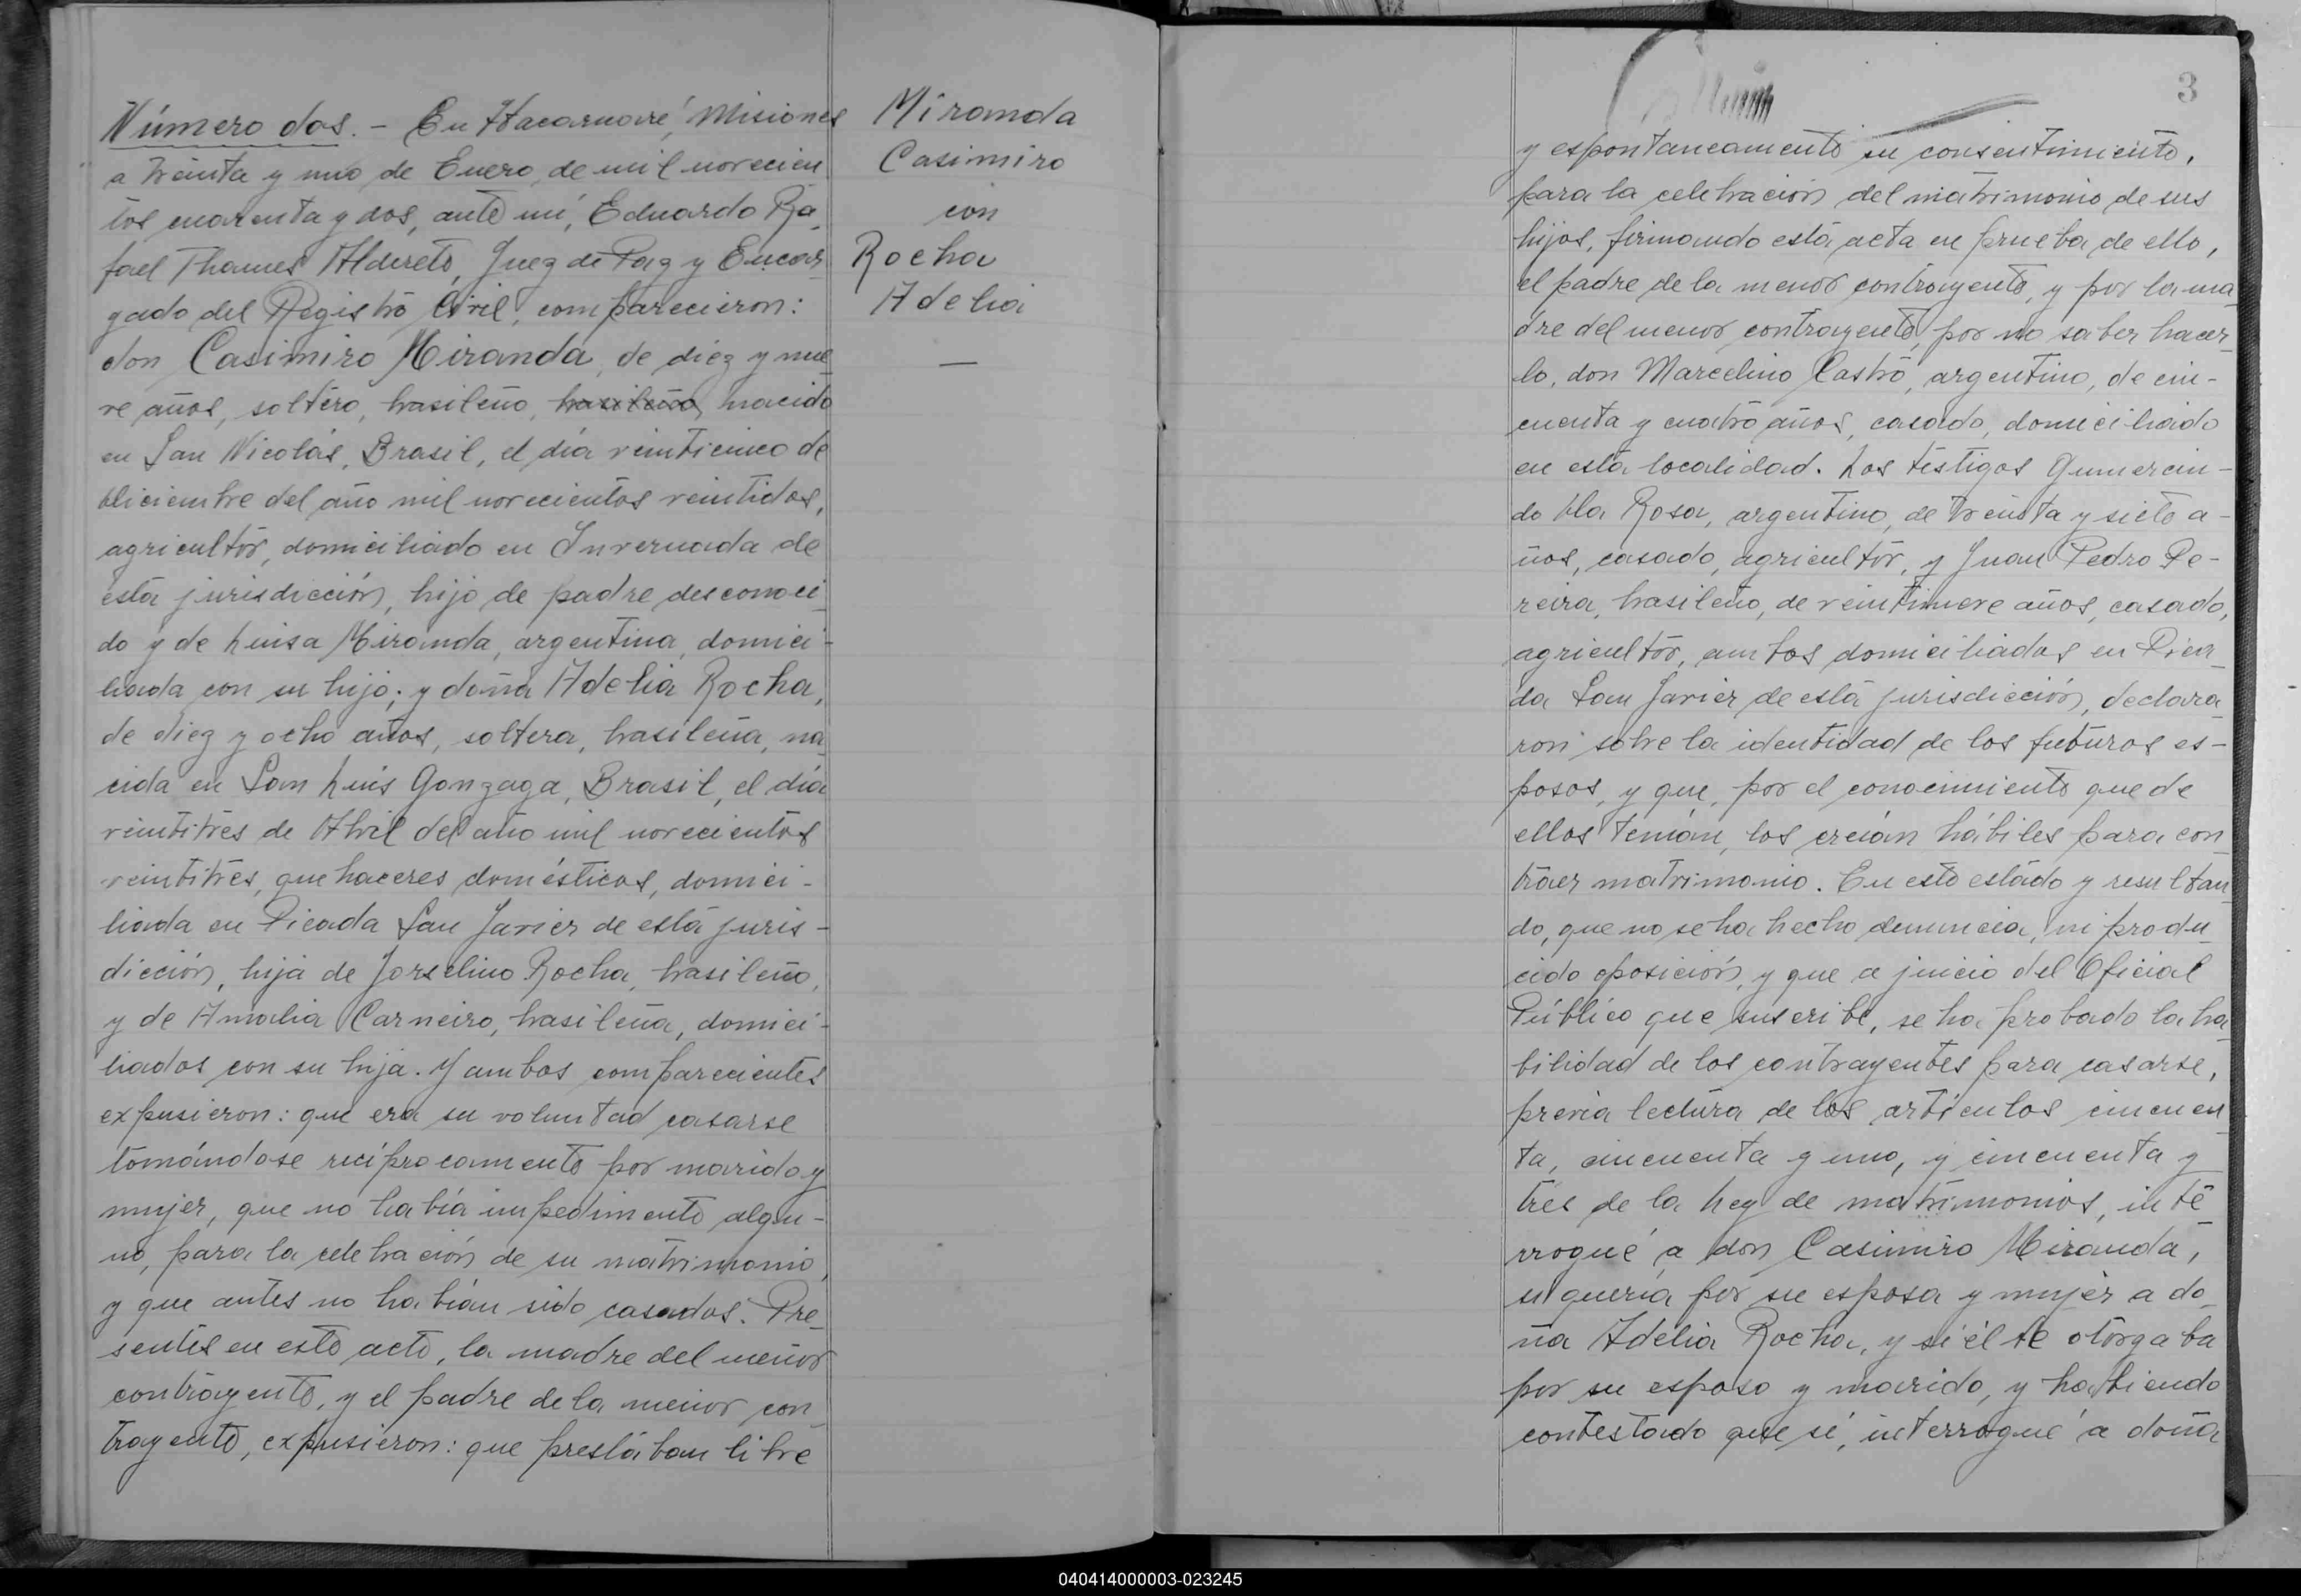 Número dos. - En Itacaruaré, Misiones
a treinta y uno de Enero, de mil novecien
tos cuarenta y dos, ante mí, Eduardo Ra_
fael Thames Alderete, Juez de Paz y Encar_
gado del Registro Civil, comparecieron:
don Casimiro Miranda, de diez y nue_
ve años, soltero, brasileño, brasileño, nacido
en San Nicolás, Brasil, el día veinticinco de
Diciembre del año mil novecientos veintidos,
agricultor, domiciliado en Invernada de
esta jurisdicción, hijo de padre desconoci_
do y de Luisa Miranda, argentina, domici-
liada con su hijo; y doña Adelia Rocha,
de diez y ocho años, soltera, brasileña, na_
cida en San Luis Gonzaga, Brasil, el día
veintitrés de Abril del año mil novecientos
veintitrés, quehaceres domésticos, domici-
liada en Picada San Javier de esta juris-
dicción, hija de Jorselino Rocha, brasileño,
y de Amalia Carneiro, brasileña, domici-
liados con su hija. Y ambos comparecientes
expusieron: que era su voluntad casarse
tomándose recíprocamente por marido y
mujer, que no había impedimento algu-
no, para la celebración de su matrimonio,
y que antes no habían sido casados. Pre_
sentes en este acto, la madre del menor
contrayente, y el padre de la menor con_
trayente, expusieron: que prestaban libre
Miranda
Casimiro
con
Rocha
Adelia
—
3
y espontaneamente su consentimiento,
para la celebración del matrimonio de sus
hijos, firmando esta acta en prueba de ello,
el padre de la menor contrayente, y por la ma_
dre del menor contrayente, por no saber hacer_
lo, don Marcelino Castro, argentino, de cin-
cuenta y cuatro años, casado, domiciliado
en esta localidad. Los testigos Gumercin-
do Da Rosa, argentino, de treinta y siete a-
ños, casado, agricultor, y Juan Pedro Pe-
reira, brasileño, de veintinueve años, casado,
agricultor, ambos domiciliados en Pica_
da San Javier de esta jurisdicción, declara_
ron sobre la identidad de los futuros es-
posos, y que, por el conocimiento que de
ellos tenían, los creían hábiles para con_
traer matrimonio. En este estado y resultan_
do, que no se ha hecho denuncia, ni produ_
cido oposición, y que a juicio del Oficial
Público que suscribe, se ha probado la ha_
bilidad de los contrayentes para casarse,
previa lectura de los artículos cincuen_
ta, cincuenta y uno, y cincuenta y
tres de la Ley de matrimonios, inte_
rrogué a don Casimiro Miranda,
si quería por su esposa y mujer a do_
ña Adelia Rocha, y si él se otorgaba
por su esposo y marido, y habiendo
contestado que sí, interrogué a doña
040414000003-023245